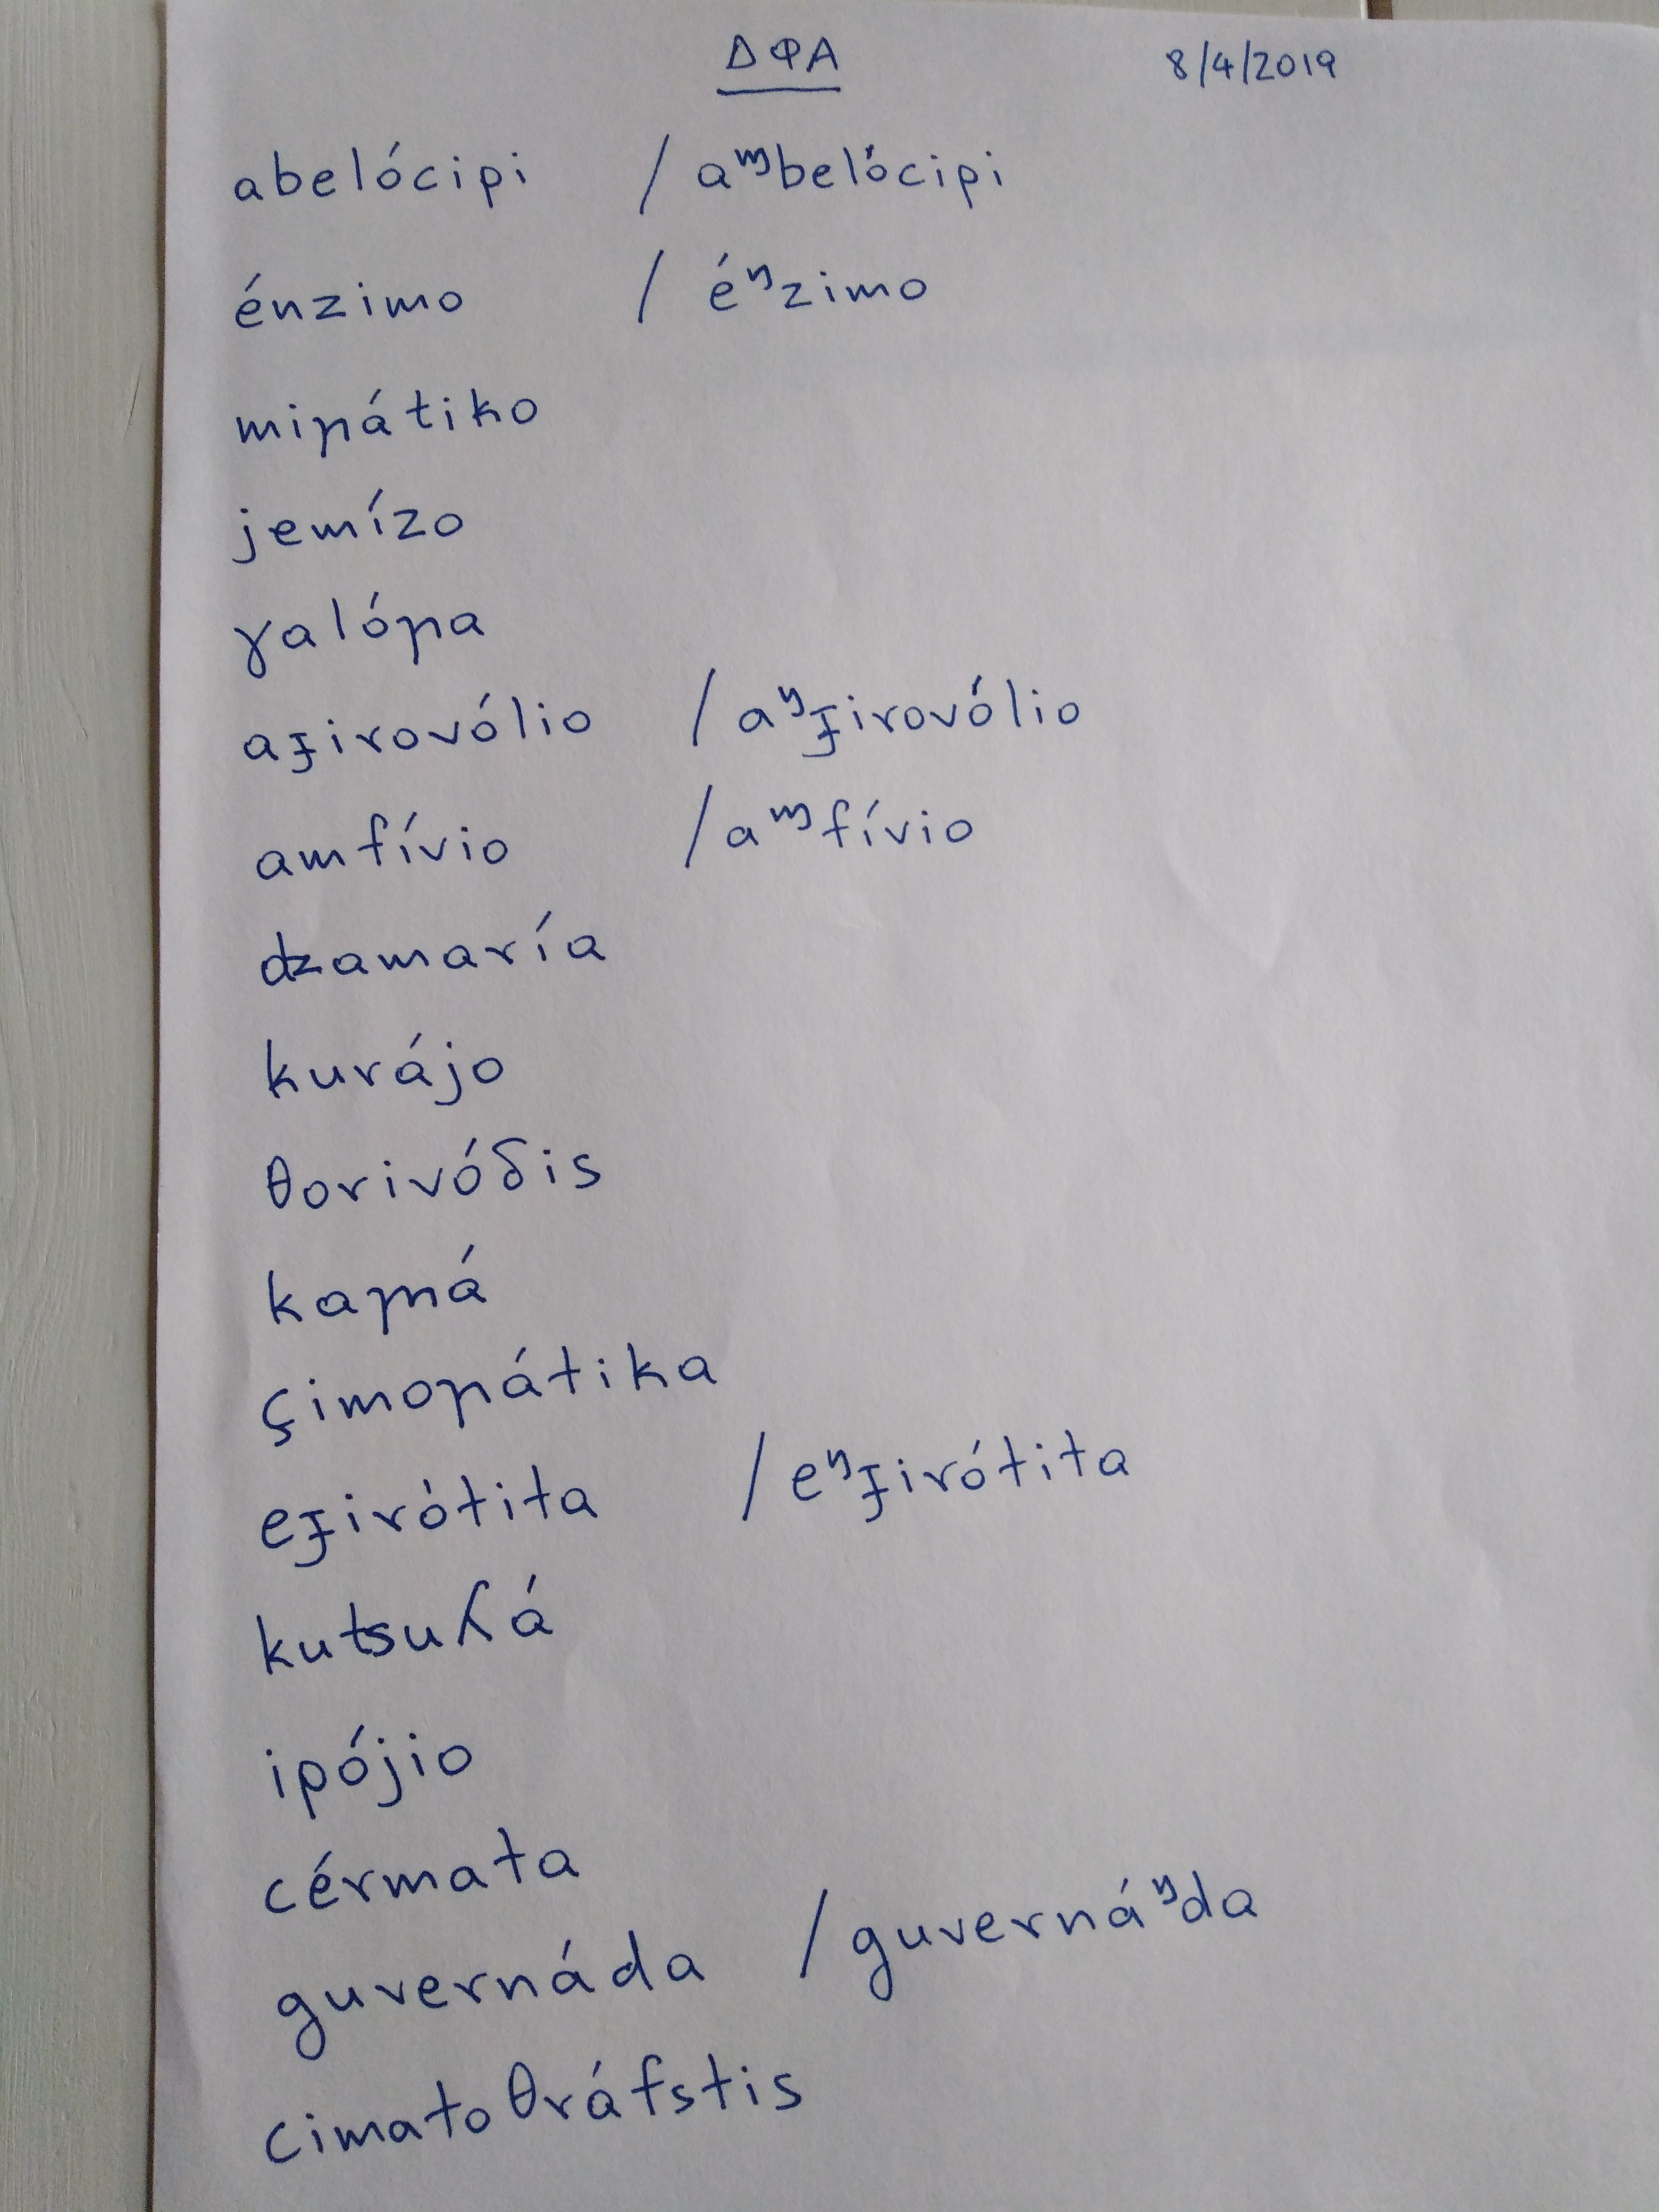 ΔΦΑ 8/4/2019
abelócipi / aᵐbelócipi
énzimo / éⁿzimo
miɲátiko
jemízo
γalópa
aɟirovólio / aⁿɟirovólio
amfívio / aᵐfívio
dzamaría
kurájo
θorivóδis
kapɲá
çimoɲátika
eɟirótita / eⁿɟirótita
kutsuʎá
ipójio
cérmata
guvernáda / guvernáⁿda
cimatoθráfstis